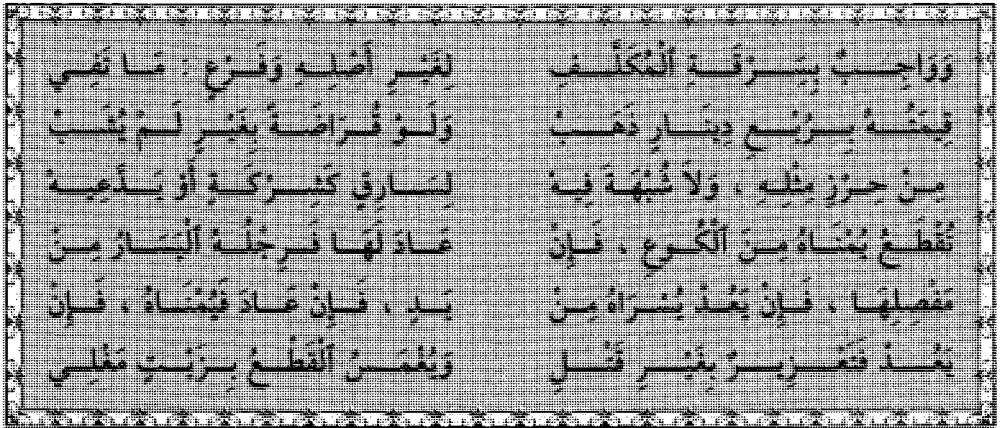 وَوَاجِبٌ بِسَرْقَةِ ٱلْمُكَلَّفِ لِغَيْرِ أَصْلِهِ وَفَرْعٍ : مَا تَفِي
قِيمَتُهُ بِرُبْعِ دِينَارٍ ذَهَبْ وَلَوْ قُرَاضَةً بِغَيْرٍ لَمْ يُشَبْ
مِنْ حِرْزِ مِثْلِهِ ، وَلاَ شُبْهَةَ فِيهْ لِسَارِقٍ كَشِرْكَةٍ أَوْ يَدَّعِيهْ
تُقْطَعُ يُمْنَاهُ مِنَ ٱلْكُوعِ ، فَإِنْ عَادَ لَهَا فَرِجْلُهُ ٱلْيَسَارُ مِنْ
مَفْصِلِهَا ، فَإِنْ يَعُدْ يُسْرَاهُ مِنْ يَدٍ ، فَإِنْ عَادَ فَيُمْنَاهُ ، فَإِنْ
يَعُدْ فَتَعْزِيرٌ بِغَيْرِ قَتْلِ وَيُغْمَسُ ٱلْقَطْعُ بِزَيْتٍ مَغْلِي